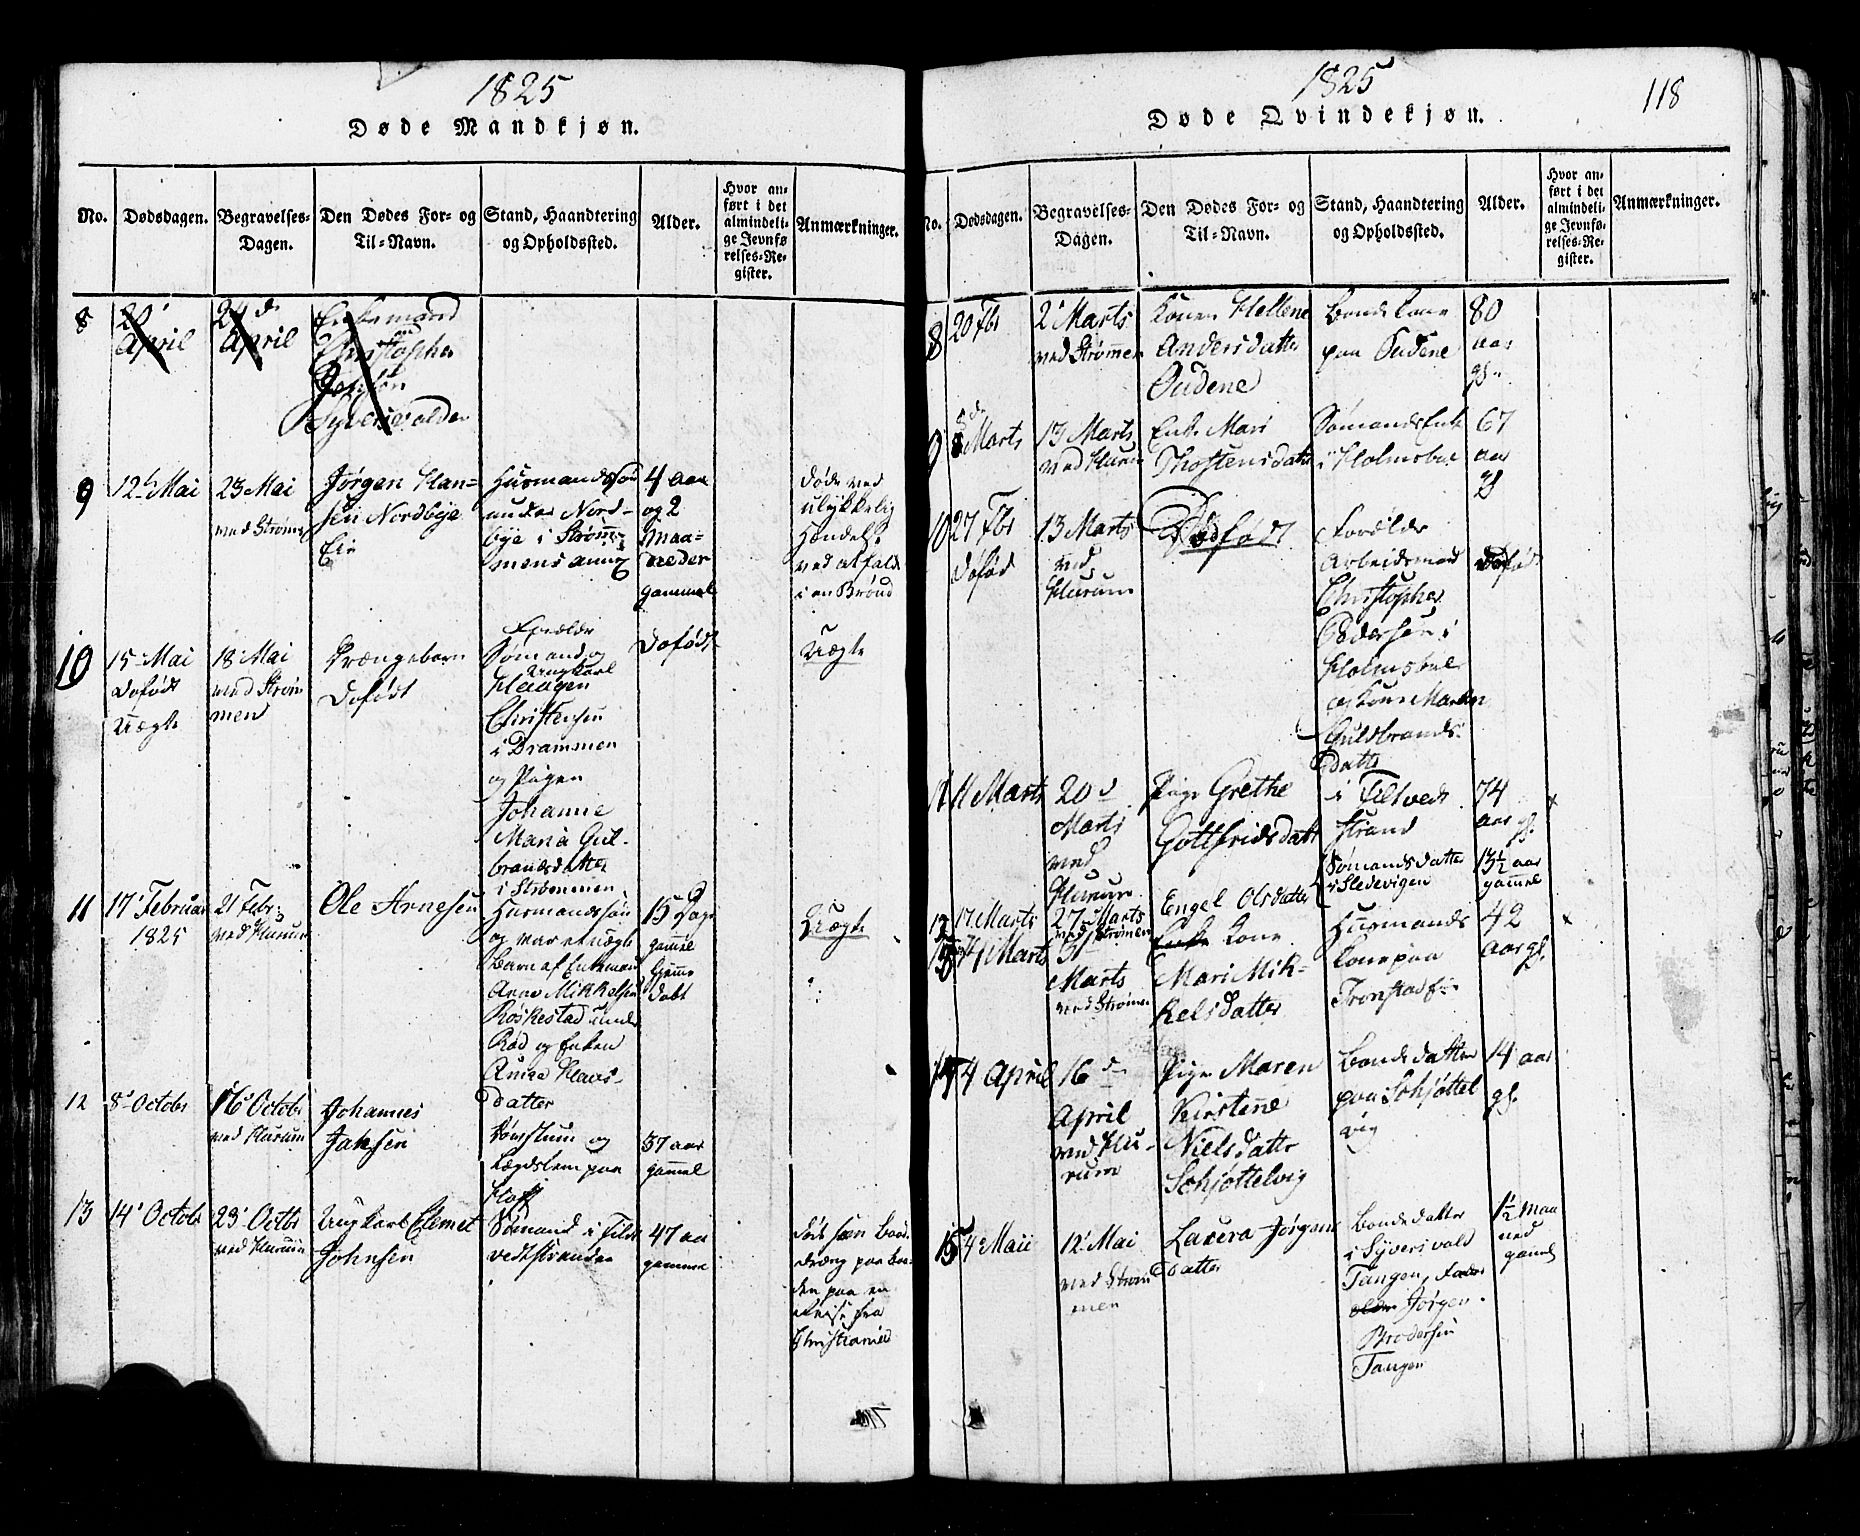 1825
Døde Mandkjøn.
No.
Dødsdagen.
Begravelses-
Dagen.
Den Dødes For- og
Til-Navn.
Stand, Haandtering
og Opholdssted.
Alder.
Hvor an-
ført i det
almindeli-
ge Jevnfø
relses-Re-
gister.
Anmærkninger.
8
20'
April
24 d
April
Enkemand
Christopher
Syversvolden
9
12' Mai
23 Mai
ved Strøm
Jørgen Han-
sen Nordbye
Eie
Husmandssøn
under Nord-
bye i Strøm-
mens annex
4 aar
og 2
Maa-
neder
gammel
døde ved
ulykkelig
Hændelse
ved at falde
i en Brønd
10
15' Mai
Dofødt
Uægte
18' Mai
ved Strøm
men
Drængebarn
Dofødt
Forældre
Sømand og
Ungkarl
Haagen
Christensen
i Drammen
og Pigen
Johanne
Maria Gul-
brandsdatter
i Strømmen
Dofødt
Uægte
11
17' Februar
1825
21 Febr:
ved Hurum
Ole Arnesen
Husmandssøn
og var et uægte
Barn af Enkemand
Arne Mikkelsen
Røskestad under
Rød og Enken
Anne Klaus-
datter
15 Dage
gammel
hjemme
døbt
Uægte
12
8' Octobr
16' Octobr
ved Hurum
Johannes
Jahsen
og
Lægdslem paa
37 aar
gammel
13
14' Octobr
23' Octbr
ved Hurum
Ungkarl Clemet
Johnsen
Sømand i Filt
vedtstranden
47 aar
gammel
paa en
Reise fra
Christiania
1825
118
Døde Qvindekjøn.
No.
Dødsdagen.
Begravelses-
Dagen.
Den Dødes For- og
Til-Navn.
Stand, Haandtering
og Opholdssted.
Alder.
Hvor an-
ført i det
almindeli-
ge Jevnfø-
relses-Re-
gister.
Anmærkninger.
8
20 Fbr
2' Marts
ved Strømmen
Konen Hellene
Andersdatter
Oudene
Bondekone
paa Oudene
80
aar
gl.
9
8 d
Marts
13 Marts
ved Hurum
Enke Mari
Thostensdatter
Sømands Enke
i Holmsbue
67
aar
gl
10
27 Fbr
Dofød
13 Marts
ved
Hurum
Dødfødt
Forældre
Arbeidsmand
Christopher
Pedersen i
Holmsbue
og Kone Maren
Guldbrands-
datter
Dofød
11
11 Marts
20 d
Marts
ved
Hurum
Pige Grethe
Gottfridsdatter
i Filtvedt
strand
74
aar gl.
x
12
17 Marts
27 Marts
ved Strømen
Engel Olsdatter
Sømandsdatter
i Sledevigen
13½ aar
gammel
13
Marts
31
Marts
ved Strømen
Enke Kone
Mari Mik-
kelsdatter
Husmands
Kone paa
Tronstad
42
aar gl.
x
14
4 April
16 d
April
ved Hu-
rum
Pige Maren
Kirstene
Nielsdatter
Schjøttelvig
Bondedatter
paa Schjøttel
vig
14 aar
gl.
15
4 Maii
12' Mai
ved Strøm
men
Laura Jørgens
datter
Bondedatter
i Syversvold
Tangen, Fader
Jørgen
Brodersen
Tangen
1½ Maa
ned
gamel